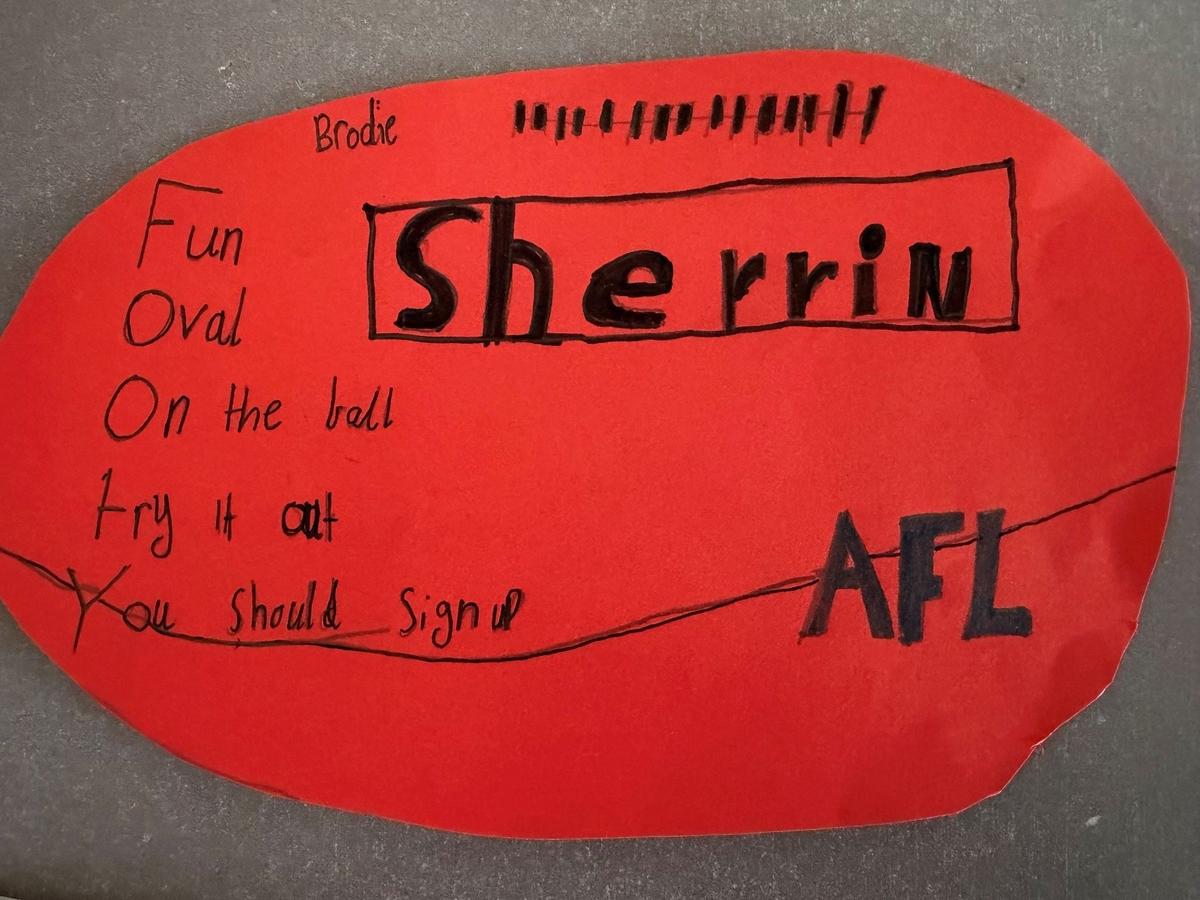 Brodie
Sherrin
Fun
Oval
On the ball
Try it out
You should Sign up
AFL